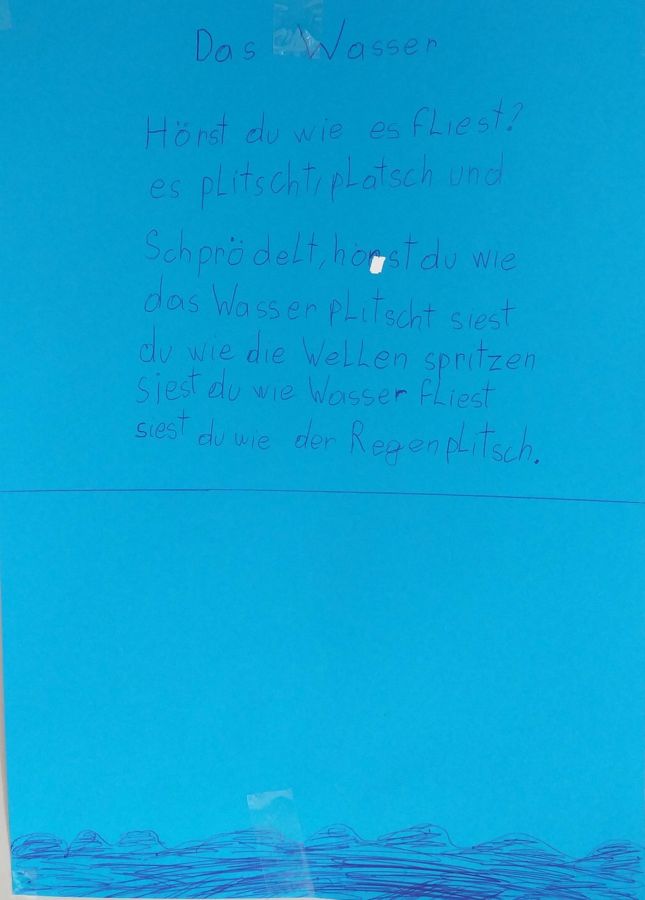 Das Wasser
Hörst du wie es fliest?
es plitscht, platsch und
Schprödelt, hörst du wie
das Wasser plitscht siest
du wie die Wellen spritzen
siest du wie Wasser fliest
siest du wie der Regen plitsch.